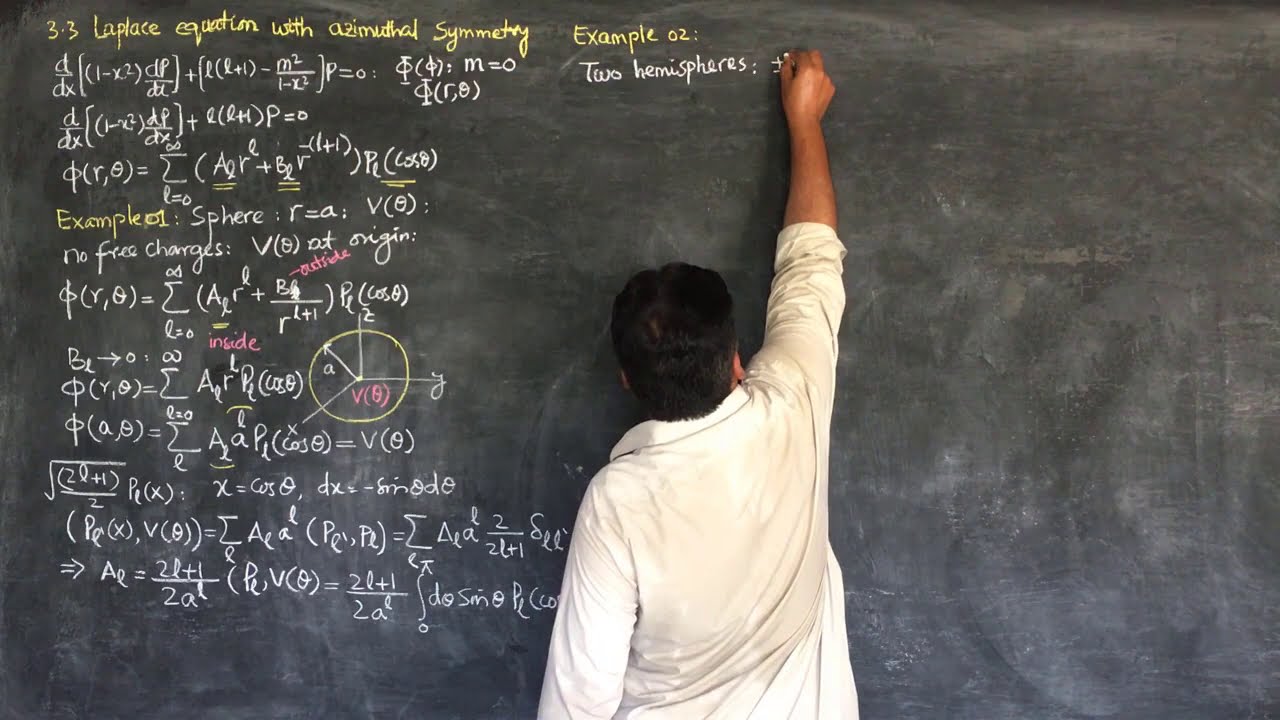 3.3 Laplace equation with azimuthal Symmetry
d/dx[(1-x²)dP/dx]+[l(l+1)-m²/1-x²]P=0: Φ(φ): m=0
Φ(r,θ)
d/dx[(1-x²)dP/dx]+l(l+1)P=0
ϕ(r,θ)=∑_{l=0}^{∞}(A_l r^l+B_l r^{-(l+1)})P_l(cosθ)
Example 01: Sphere: r=a: V(θ):
no free charges: V(θ) at origin:
-outside
ϕ(r,θ)=∑_{l=0}^{∞}(A_l r^l+B_l/r^{l+1})P_l(cosθ)
inside
z
B_l→0:
a
y
V(θ)
x
ϕ(r,θ)=∑_{l=0}^{∞}A_l r^l P_l(cosθ)
ϕ(a,θ)=∑_l A_l a^l P_l(cosθ)=V(θ)
√(2l+1)/2 P_l(x): x=cosθ, dx=-sinθdθ
(P_l'(x),V(θ))=∑_l A_l a^l(P_l',P_l)=∑_l A_l a^l 2/2l+1 δ_ll'
⇒ A_l=2l+1/2a^l(P_l,V(θ)=2l+1/2a^l ∫_0^π dθ sinθ P_l(cos
Example 02:
Two hemispheres: ±